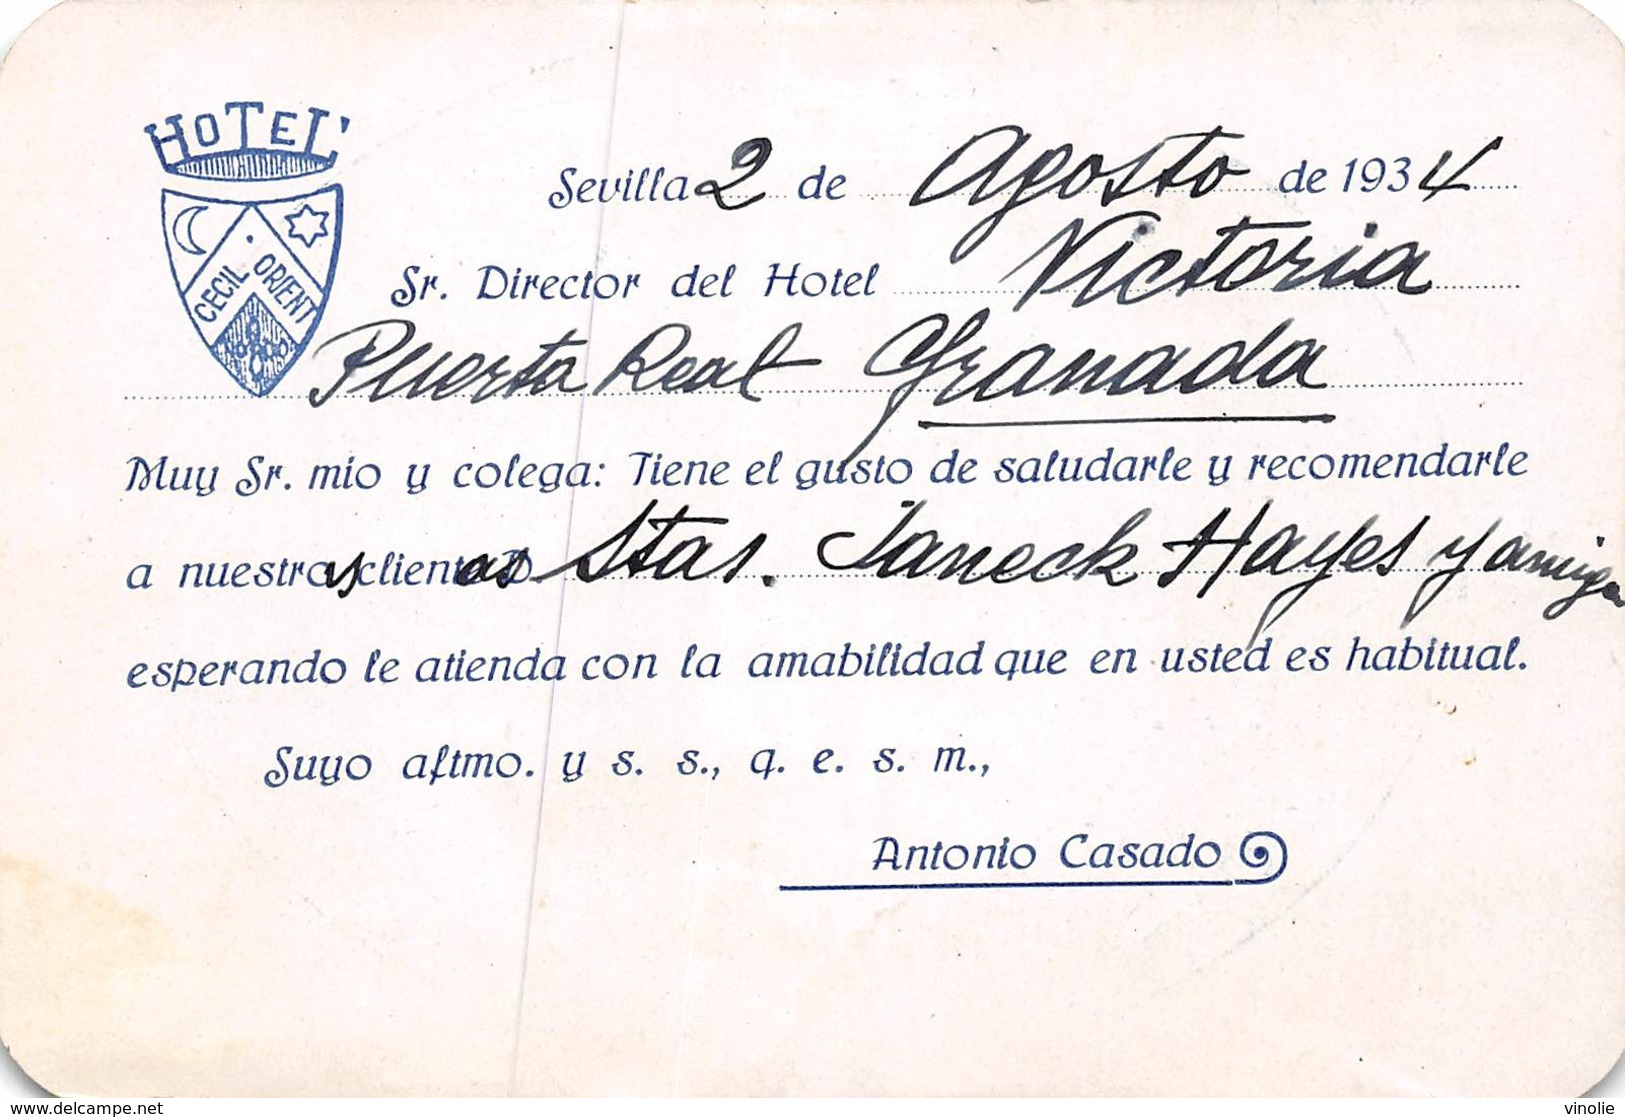 HOTEL
CECIL ORIENT
NO8DO
Sevilla 2 de Agosto de 1934
Sr. Director del Hotel Victoria
Puerta Real Granada
Muy Sr. mio y colega: Tiene el gusto de saludarle y recomendarle
a nuestras clientas Stas. Janeck Hayes y amiga
esperando le atienda con la amabilidad que en usted es habitual.
Suyo aftmo. y s. s., q. e. s. m.,
Antonio Casado
www.delcampe.net
vinolie